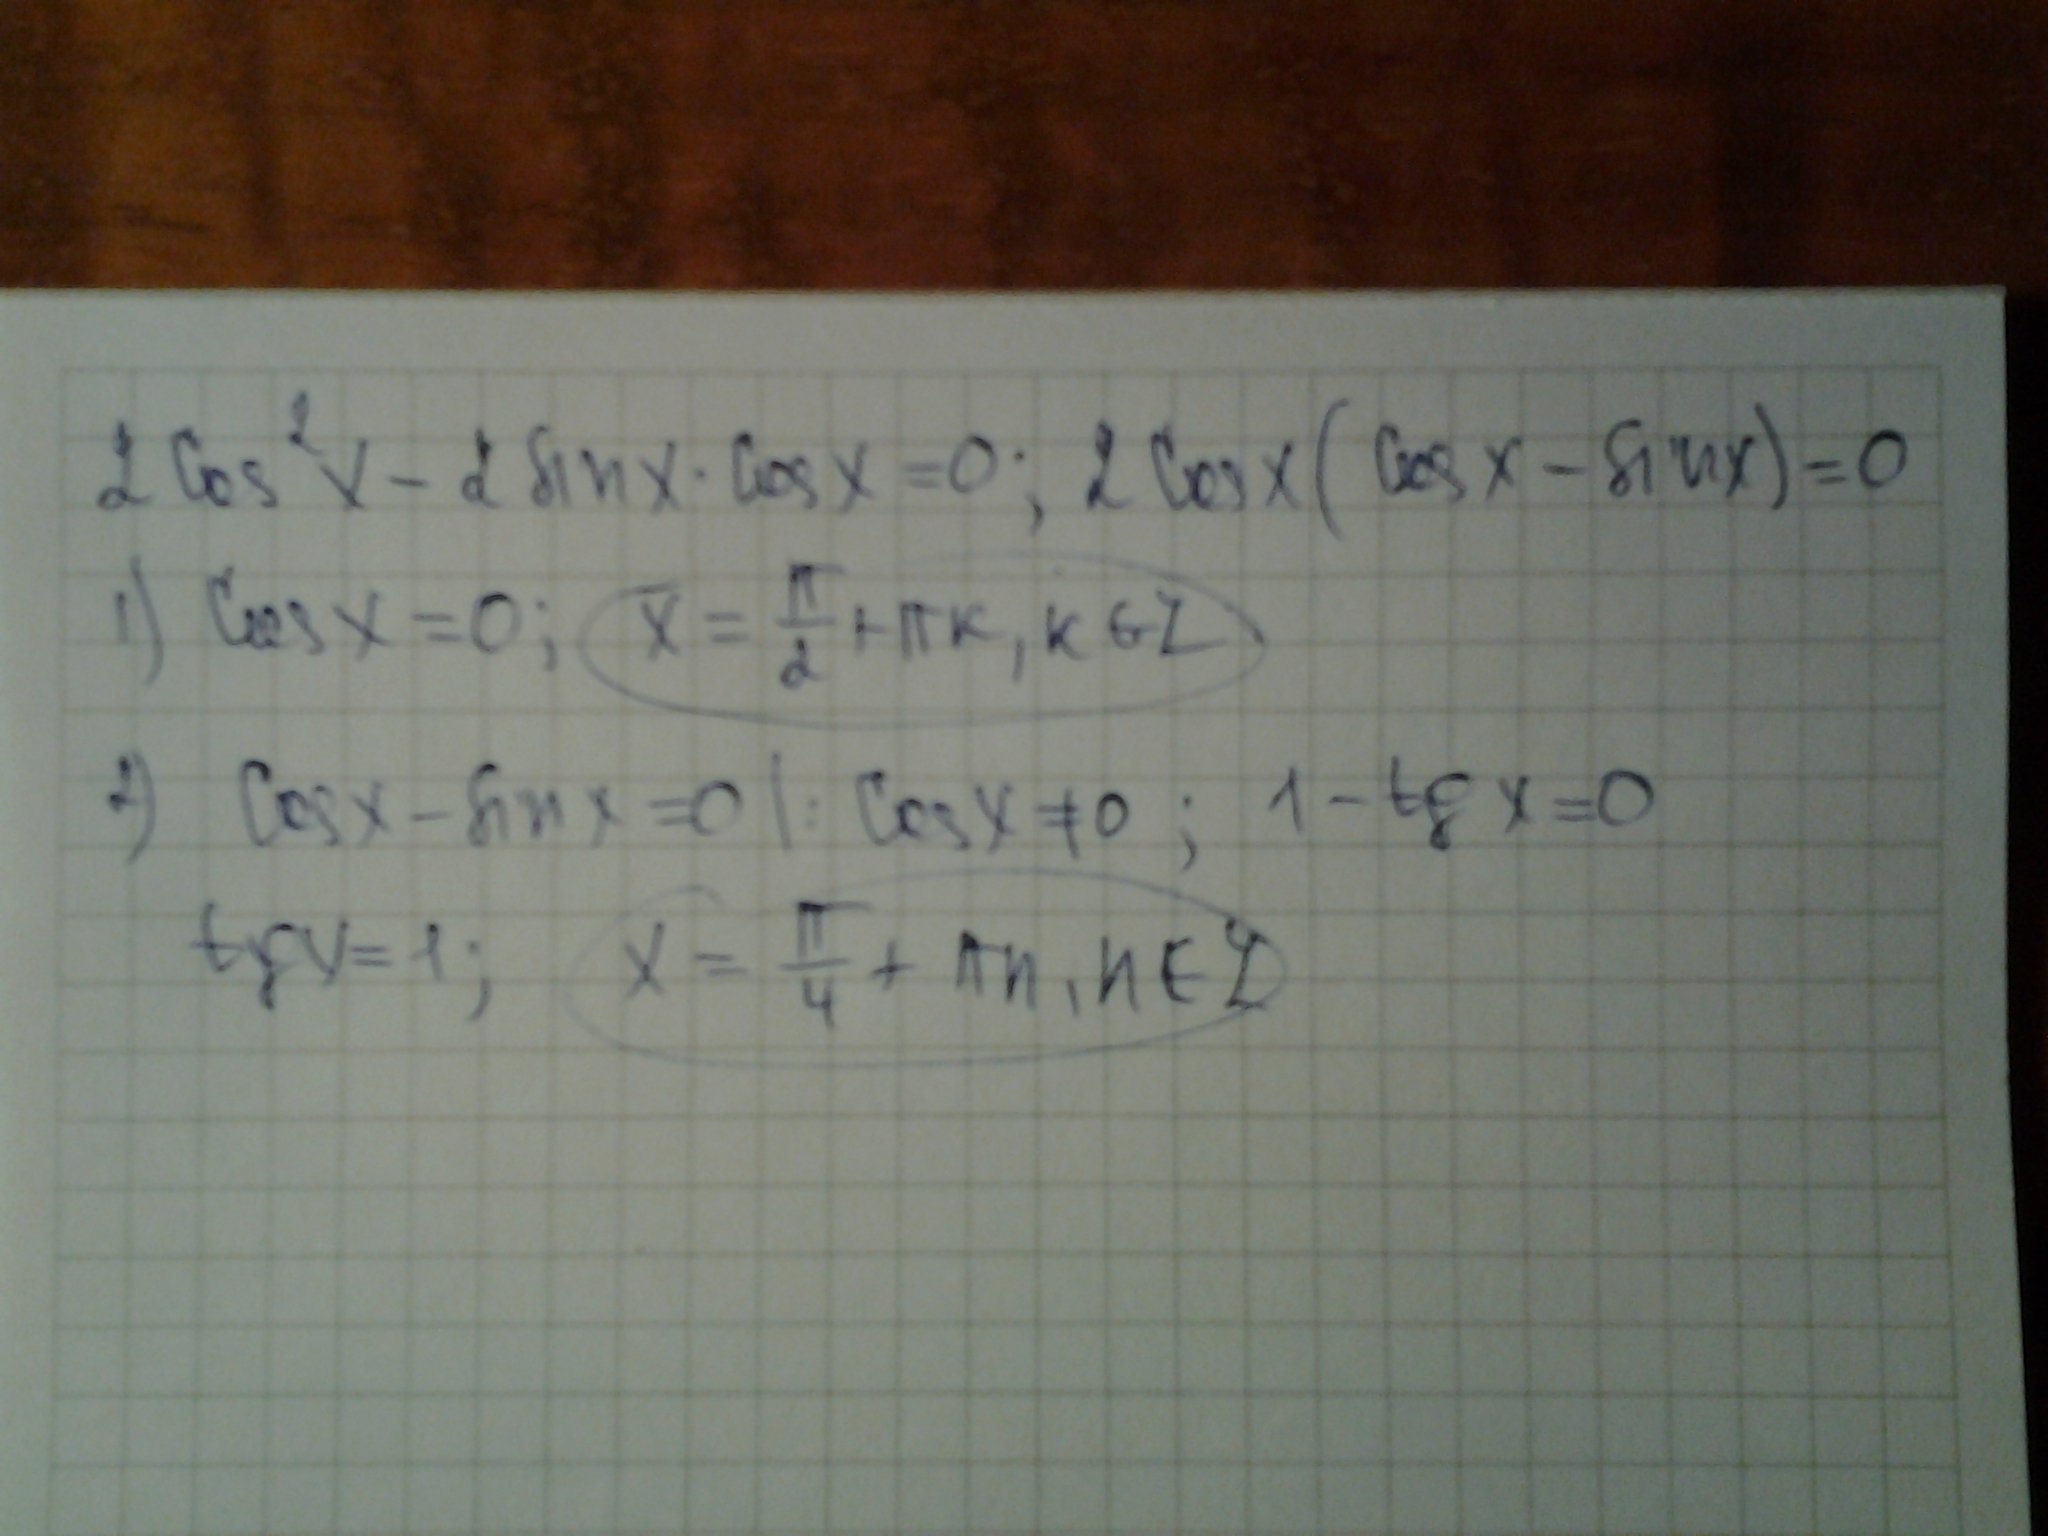 2 Cos²x - 2 sin x · Cos x = 0; 2 Cos x ( Cos x - sin x) = 0
1) Cos x = 0; x = π/2 + πk, k ∈ Z
2) Cos x - sin x = 0 |: Cos x ≠ 0 ; 1 - tg x = 0
tg x = 1; x = π/4 + πn, n ∈ Z